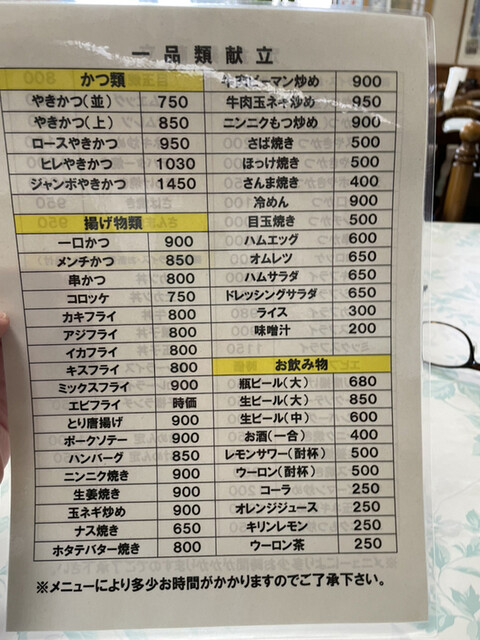 一品類献立
かつ類
やきかつ(並) 750
やきかつ(上) 850
ロースやきかつ 950
ヒレやきかつ 1030
ジャンボやきかつ 1450
揚げ物類
一口かつ 900
メンチかつ 850
串かつ 800
コロッケ 750
カキフライ 800
アジフライ 800
イカフライ 800
キスフライ 800
ミックスフライ 900
エビフライ 時価
とり唐揚げ 900
ポークソテー 900
ハンバーグ 850
ニンニク焼き 900
生姜焼き 900
玉ネギ炒め 900
ナス焼き 650
ホタテバター焼き 800
牛肉ピーマン炒め 900
牛肉玉ネギ炒め 950
ニンニクもつ炒め 900
さば焼き 500
ほっけ焼き 500
さんま焼き 400
冷めん 900
目玉焼き 500
ハムエッグ 600
オムレツ 650
ハムサラダ 650
ドレッシングサラダ 650
ライス 300
味噌汁 200
お飲み物
瓶ビール(大) 680
生ビール(大) 850
生ビール(中) 600
お酒(一合) 400
レモンサワー(酎杯) 500
ウーロン(酎杯) 500
コーラ 250
オレンジジュース 250
キリンレモン 250
ウーロン茶 250
※メニューにより多少お時間がかかりますのでご了承下さい。